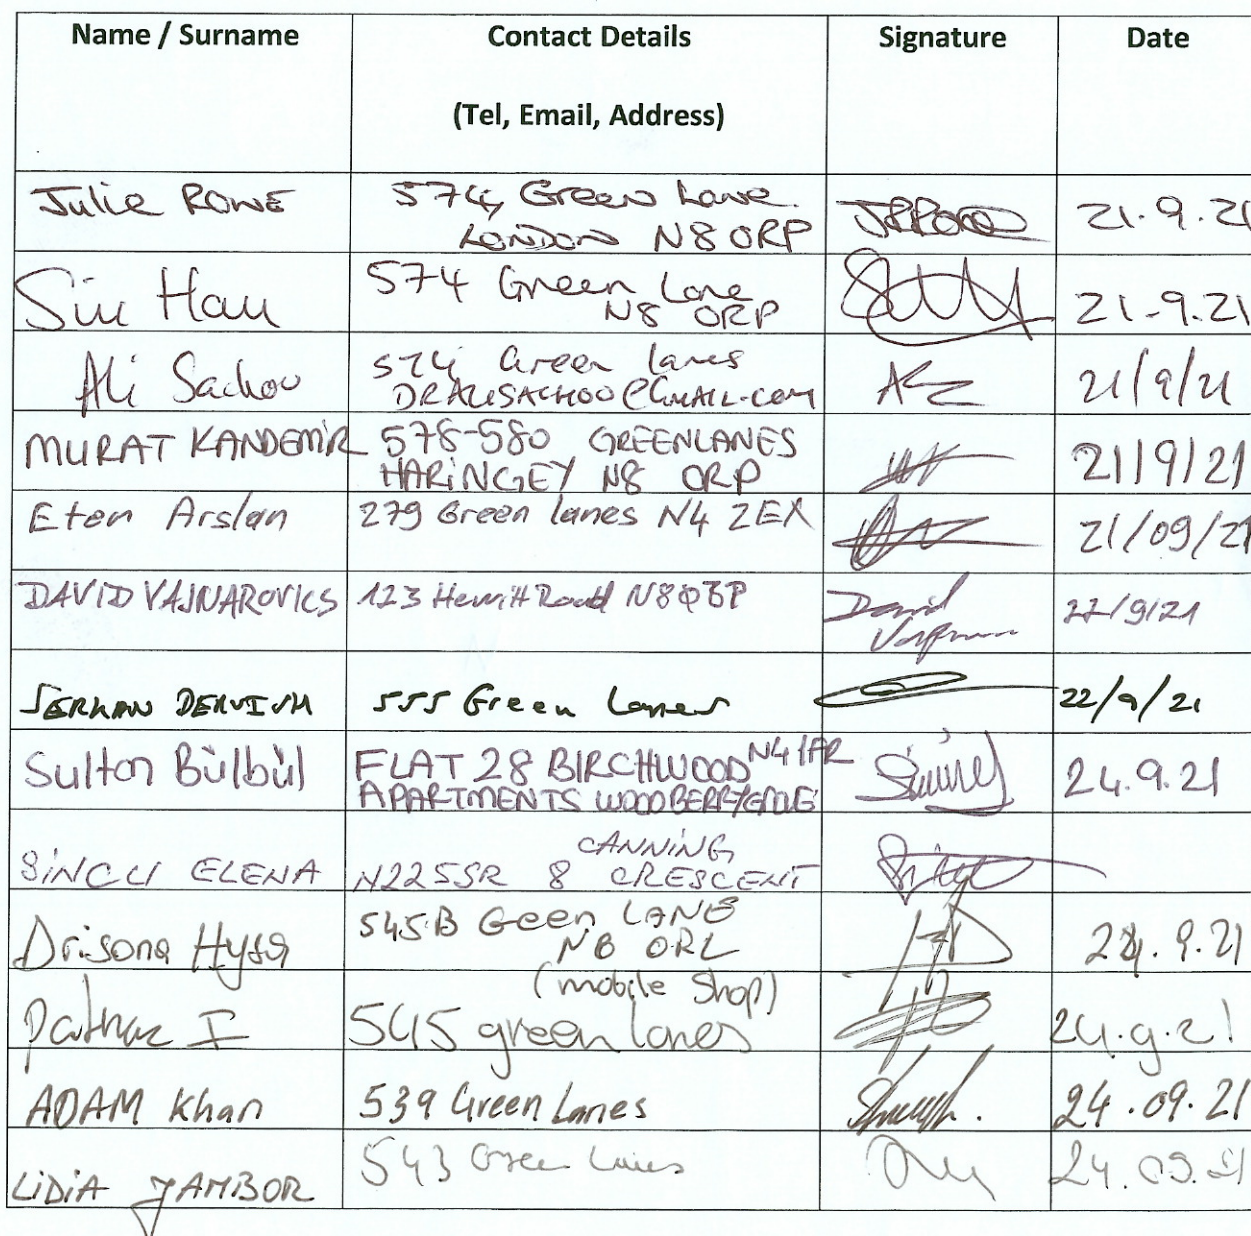 Name / Surname
Contact Details
(Tel, Email, Address)
Signature
Date
Julie ROWE
574, Green Lane.
LONDON N8 0RP
21.9.21
Siu Hau
574 Green Lane
N8 0RP
21.9.21
Ali Sachoo
574 Green lanes
DRALISACHOO@GMAIL.COM
21/9/21
MURAT KANDEMİR
578-580 GREENLANES
HARİNGEY N8 0RP
21/9/21
Eten Arslan
279 Green lanes N4 2EX
21/09/21
DAVID VAJNAROVICS
123 Hewitt Road N8 0BP
David
22/9/21
SERKAN DERVISH
555 Green Lanes
22/9/21
Sultan Bülbül
FLAT 28 BIRCHWOOD N4 1FR
APARTMENTS WOODBERRY GROVE
24.9.21
SİNCU ELENA
CANNİNG
N22 5SR 8 CRESCENT
Drisona Hysa
545B Geen LANE
N8 0RL
(mobile Shop)
24.9.21
545 green lanes
24.9.21
ADAM Khan
539 Green Lanes
24.09.21
LiDiA JAMBOR
543 Green Lanes
24.09.21